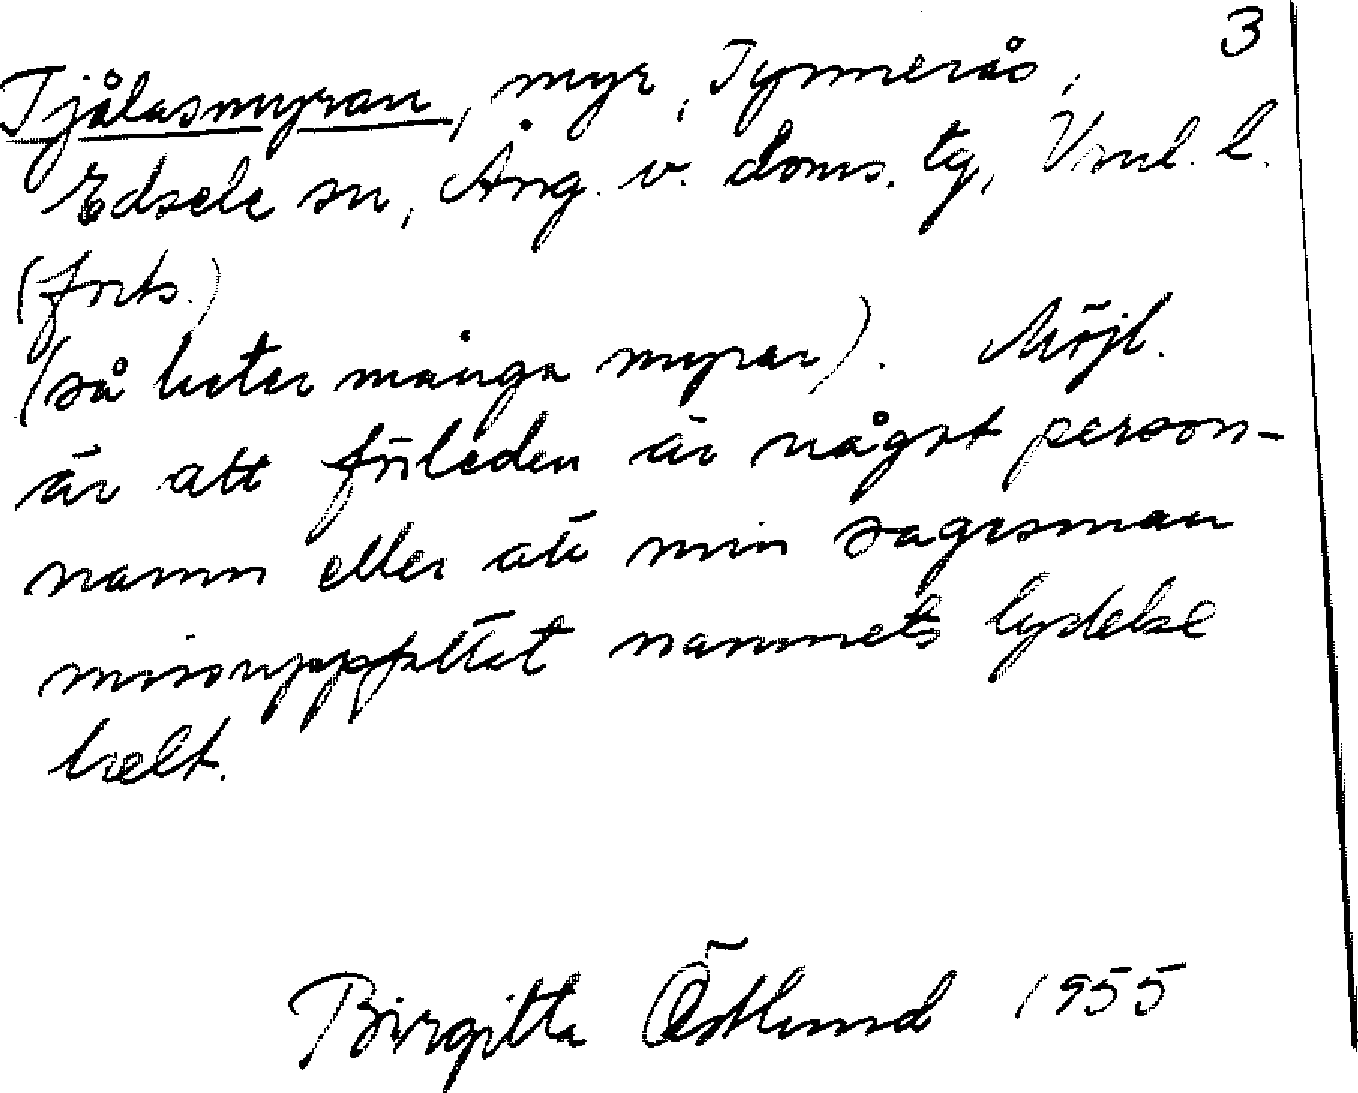 3
Tjålasmyran, myr, Tymnerås,
Edsele sn, Ång. v. doms. tg, Vnl. l.
(forts.)
(så heter många myrar). Möjl.
är att förleden är något person-
namn eller att min sagesman
missuppfattat namnets lydelse
helt.
Birgitta Östlund 1955